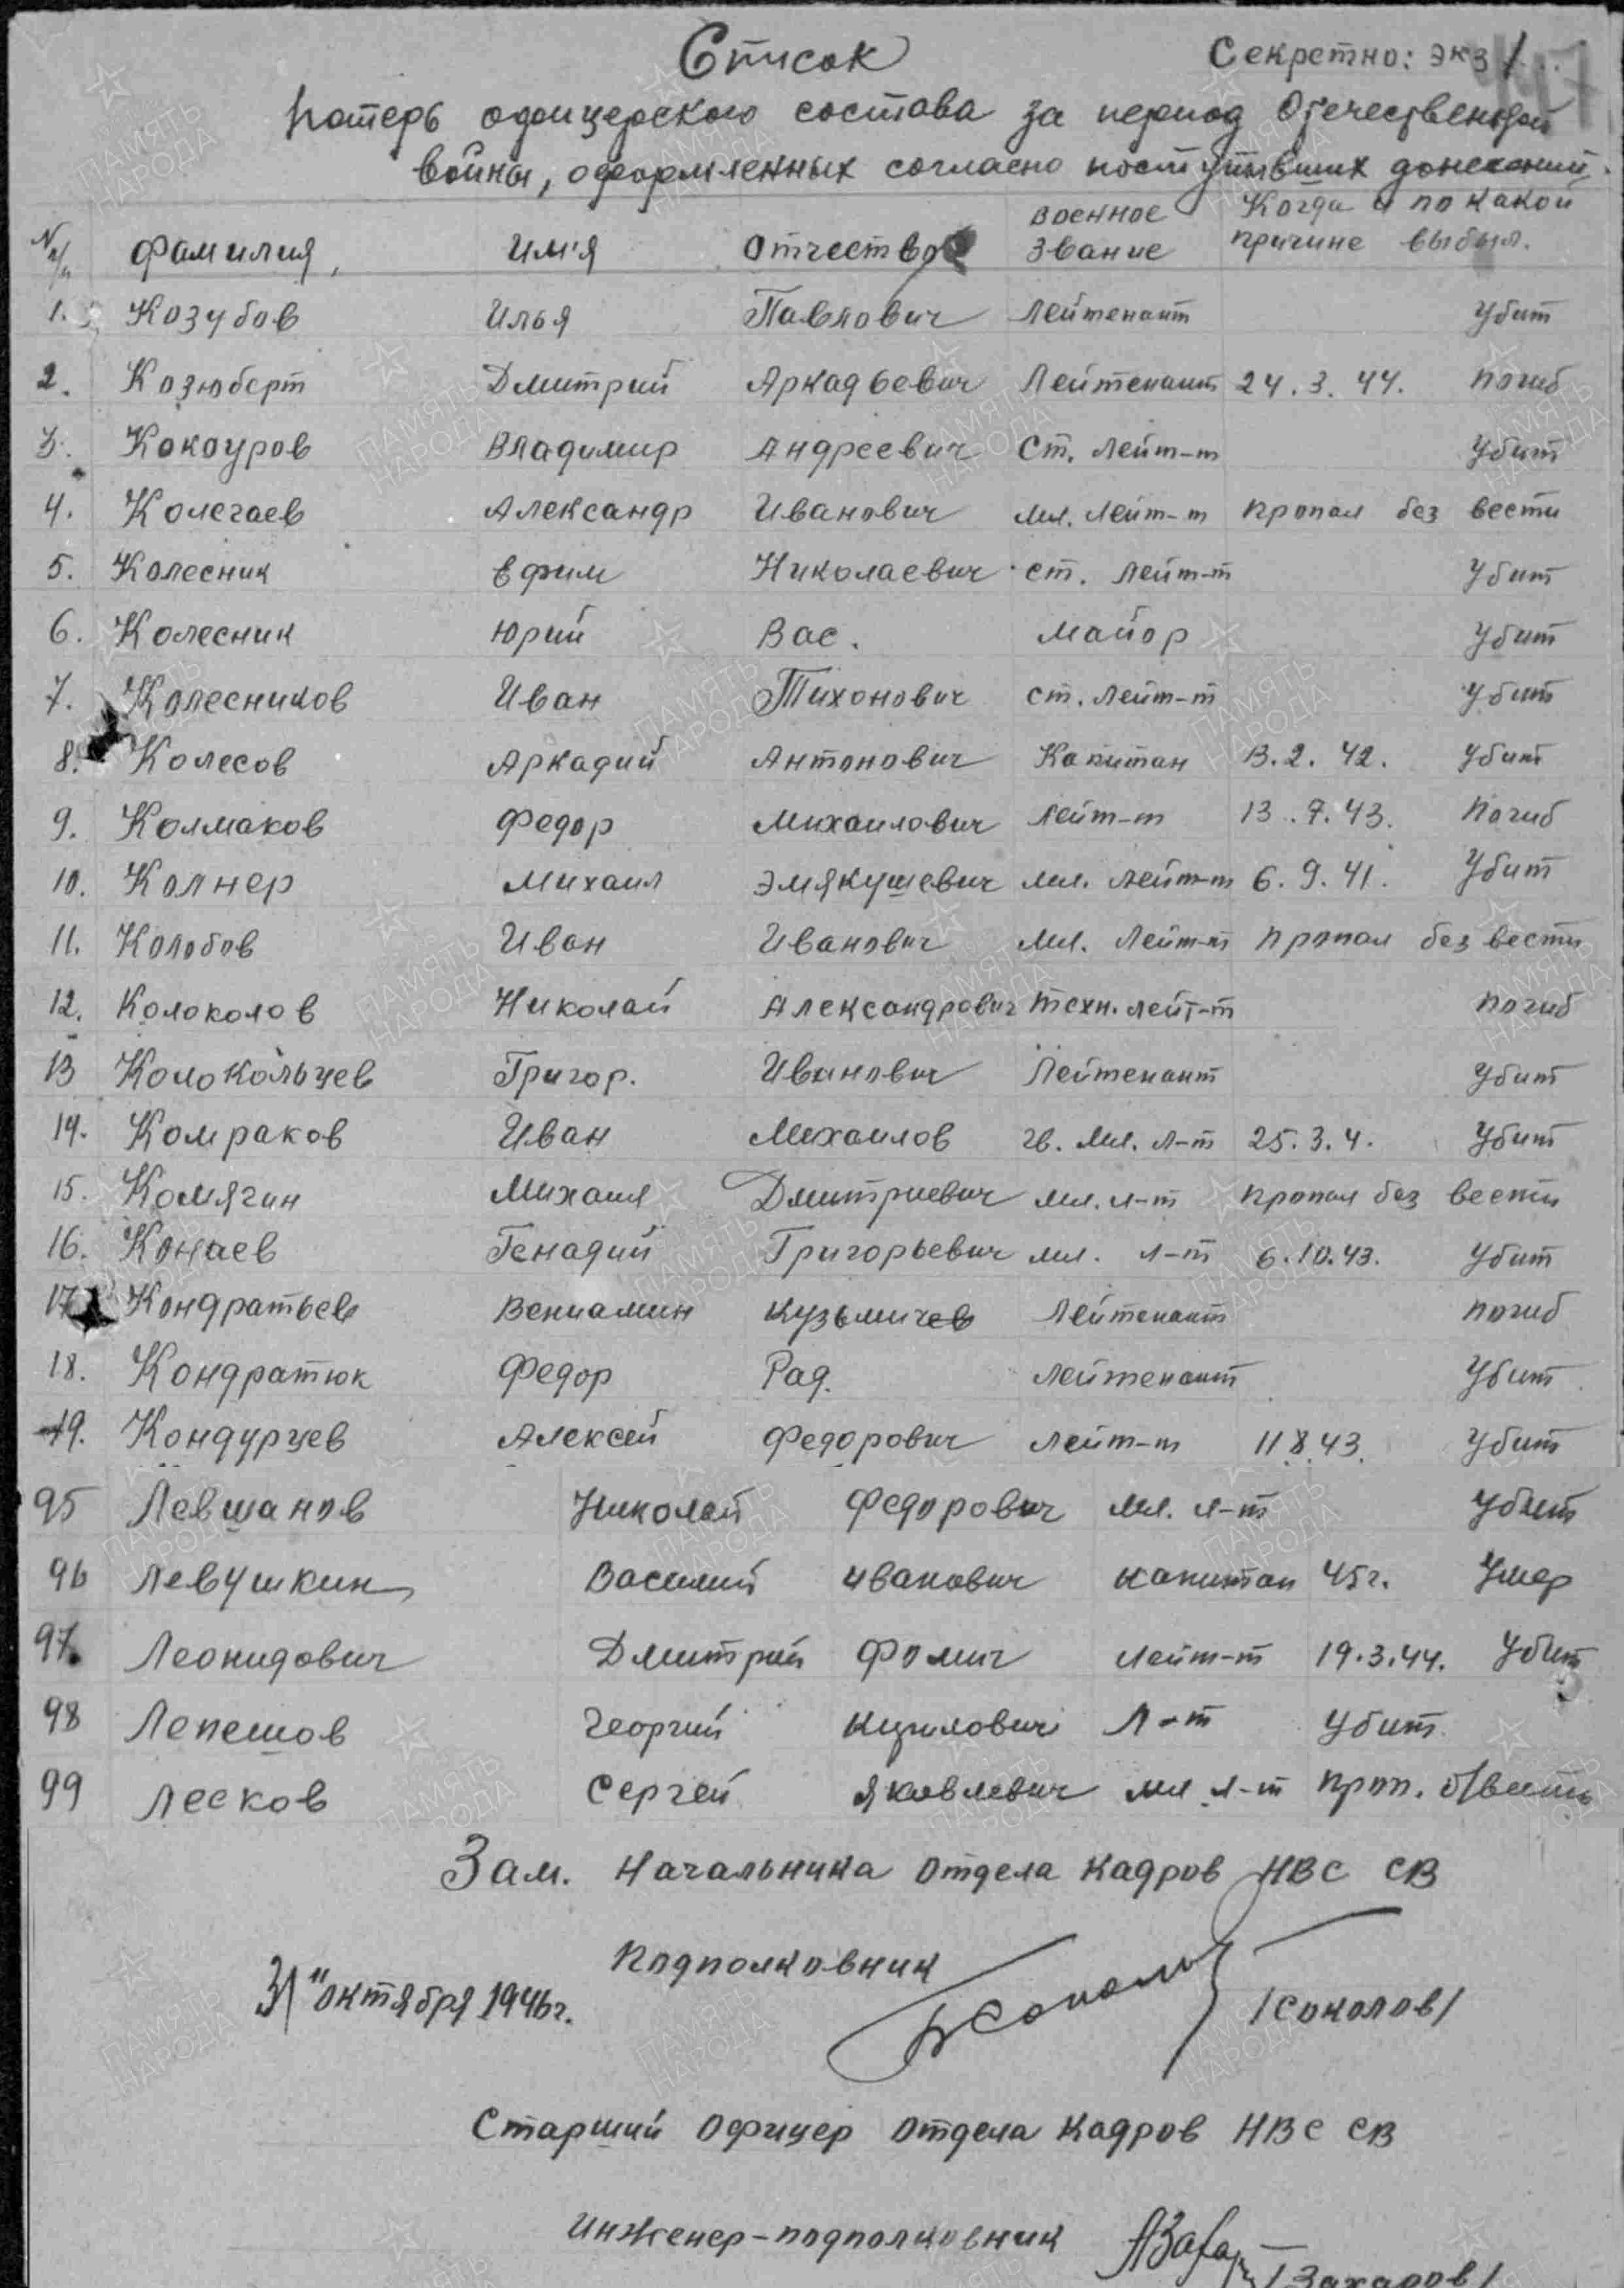 Список
Секретно: экз 1
потерь офицерского состава за период Отечественной
войны, оформленных согласно поступивших донесений.
№ п/п фамилия, имя отчество военное звание Когда и по какой причине выбыл.
1. Козубов Илья Павлович Лейтенант Убит
2. Козюберт Дмитрий Аркадьевич Лейтенант 24.3.44. погиб
3. Кокоуров Владимир Андреевич Ст. Лейт-т Убит
4. Колегаев Александр Иванович мл. Лейт-т пропал без вести
5. Колесник Ефим Николаевич ст. Лейт-т Убит
6. Колесник Юрий Вас. майор Убит
7. Колесников Иван Тихонович ст. Лейт-т Убит
8. Колесов Аркадий Антонович Капитан 13.2.42. Убит
9. Колмаков Федор Михаилович лейт-т 13.7.43. Погиб
10. Колнер Михаил Эмякушевич мл. лейт-т 6.9.41. Убит
11. Колобов Иван Иванович мл. Лейт-т пропал без вести
12. Колоколов Николай Александрович техн. лейт-т погиб
13 Колокольцев Григор. Иванович Лейтенант Убит
14. Комраков Иван Михаилов гв. мл. л-т 25.3.4. Убит
15. Комягин Михаил Дмитриевич мл. л-т пропал без вести
16. Конаев Генадий Григорьевич мл. л-т 6.10.43. Убит
17 Кондратьев Вениамин Кузьмичев Лейтенант погиб
18. Кондратюк Федор Рад. Лейтенант Убит
19. Кондурцев Алексей Федорович лейт-т 11.8.43. Убит
95 Левшанов Николай Федорович мл. л-т Убит
96 Левушкин Василий Иванович капитан 45г. Умер
97. Леонидович Дмитрий Фомич лейт-т 19.3.44. Убит
98 Лепешов Георгий Кирилович Л-т Убит.
99 Лесков Сергей Яковлевич мл л-т проп. б/вести
Зам. Начальника Отдела Кадров НВС СВ
Подполковник
/Соколов/
31" октября 1946г.
Старший Офицер Отдела Кадров НВС СВ
Инженер-подполковник
/Захаров/
ПАМЯТЬ НАРОДА